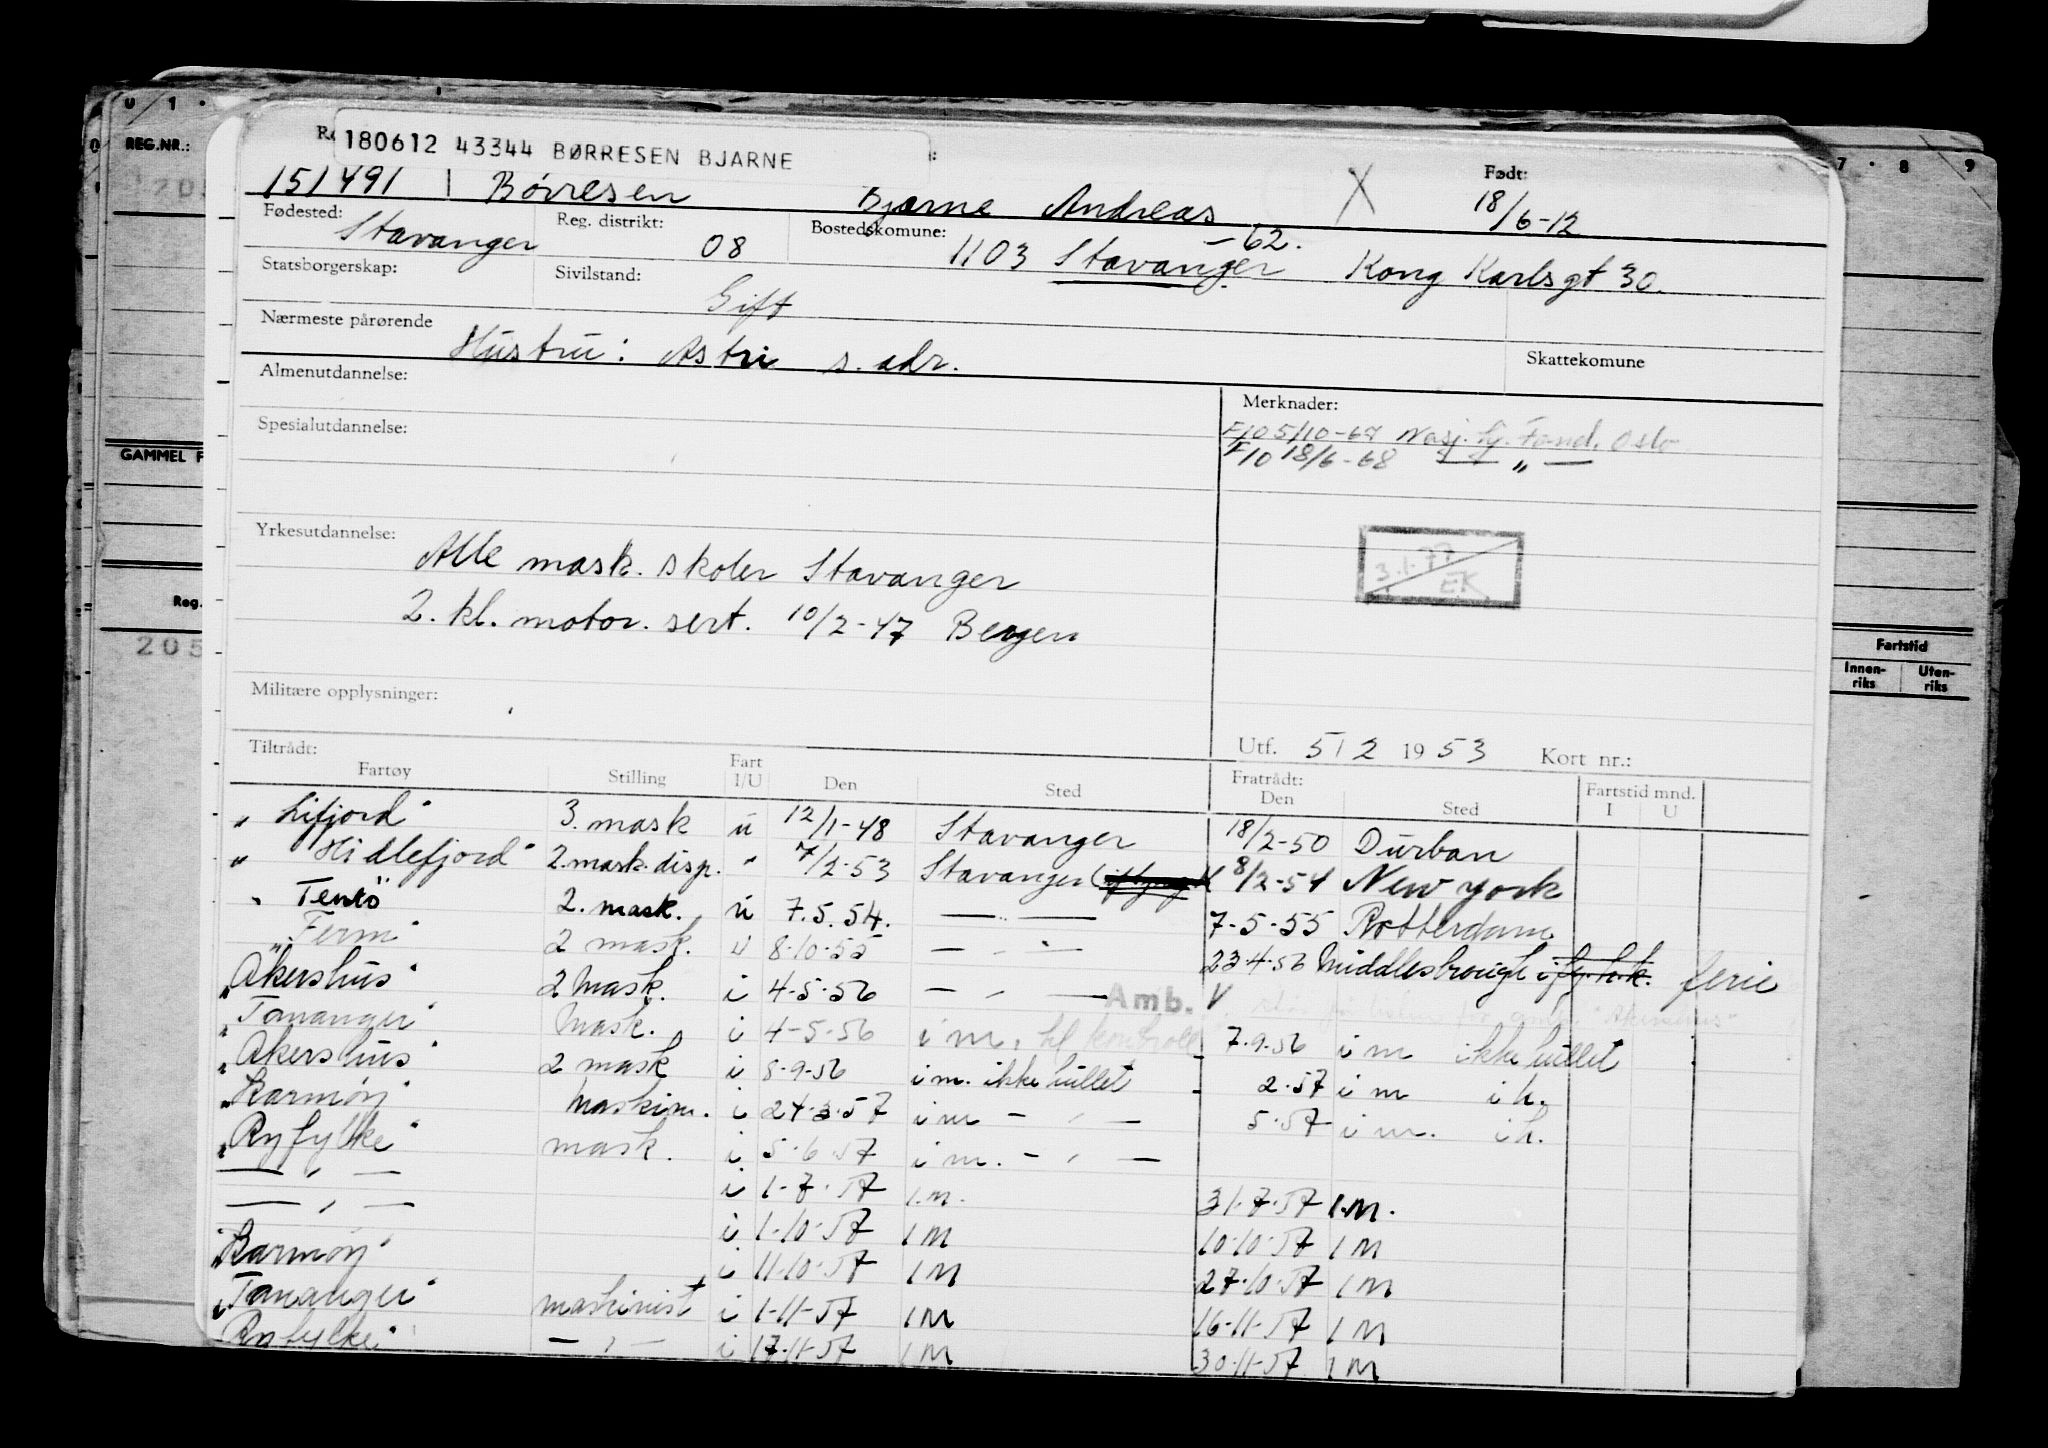 U 1 .
7 . 8 9
REG.NR.:
GAMMEL F
Reg.
205
Fartstid
Innen-riks Uten-riks
180612 43344 BØRRESEN BJARNE
Født:
151491 Børresen Bjarne Andreas X 18/6-12
Fødested: Stavanger Reg. distrikt: 08 Bostedskomune: 1103 Stavanger -62. Kong Karlsgt 30.
Statsborgerskap: Sivilstand: Gift
Nærmeste pårørende Hustru: Astri s. adr. Skattekomune
Almenutdannelse:
Merknader:
F/10 5/10-67 Nasj. hj. Fond. Oslo
F/10 18/6-68 — „ —
Spesialutdannelse:
Yrkesutdannelse: Alle mask. skoler Stavanger
2. kl. motor. sert. 10/2-47 Bergen
3.1.77
EK
Militære opplysninger:
Tiltrådt: Utf. 5/2 1953 Kort nr.:
Fartøy Stilling Fart I/U Den Sted Fratrådt: Den Sted Fartstid mnd. I U
"Lifjord" 3. mask u 12/1-48 Stavanger 18/2-50 Durban
" Hidlefjord" 2. mask. disp. " 7/2-53 Stavanger 8/2-54 New York
" Tento" 2. mask. u 7.5.54. — " — 7-5-55 Rotterdam
"Ferm" 2 mask. u 8-10-55 — " — 23-4-56 Middlesbrough ferie
"Akershus" 2 Mask. i 4-5-56 — " — Amb. V
"Tananger" Mask. i 4-5-56 i m. til kontroll 7.9.56 i m ikke hullet
"Akershus" 2 mask i 8-9-56 i m. ikke hullet 2.57 i m i h.
"Karmøy" Maskin. i 24-3-57 i m — " — 5.57 i m. i h.
"Ryfylke" mask. i 5-6-57 i m. — " —
— " — i 1-7-57 I.M. 31.7.57 I.M.
— " — i 1-10-57 IM 10-10-57 IM
"Karmøy" i 11-10-57 IM 27-10-57 IM
"Tananger" maskinist i 1-11-57 IM 16-11-57 IM
"Ryfylke" — " — i 17-11-57 IM 30-11-57 IM